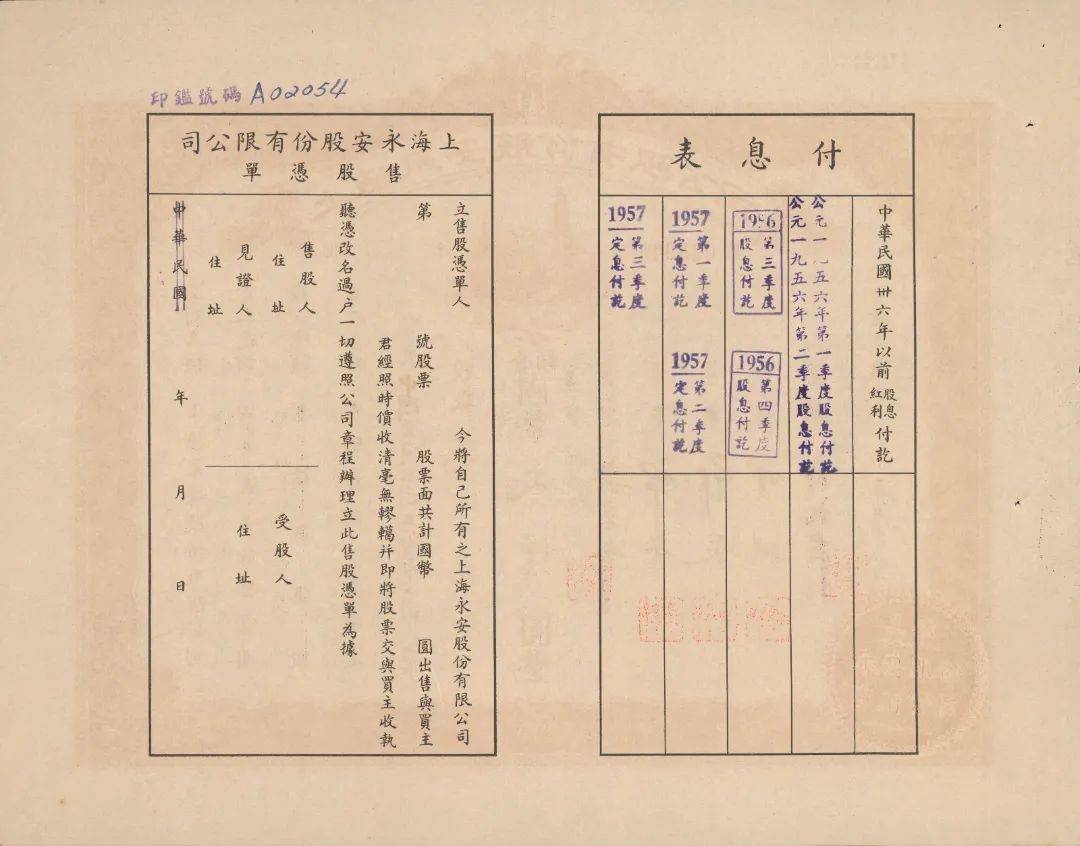 付息表
中華民國卅六年以前股息紅利付訖
公元一九五六年第一季度股息付訖
公元一九五六年第二季度股息付訖
1956
第三季度
股息付訖
1956
第四季度
股息付訖
1957
第一季度
定息付訖
1957
第二季度
定息付訖
1957
第三季度
定息付訖
印鑑號碼 A02054
上海永安股份有限公司
售股憑單
立售股憑單人 今將自己所有之上海永安股份有限公司
第 號股票 股票面共計國幣 圓出售與買主
君經照時價收清毫無轇轕并即將股票交與買主收執
聽憑改名過户一切遵照公司章程辦理立此售股憑單為據
售股人
住址
見證人
住址
受股人
住址
中華民國 年 月 日